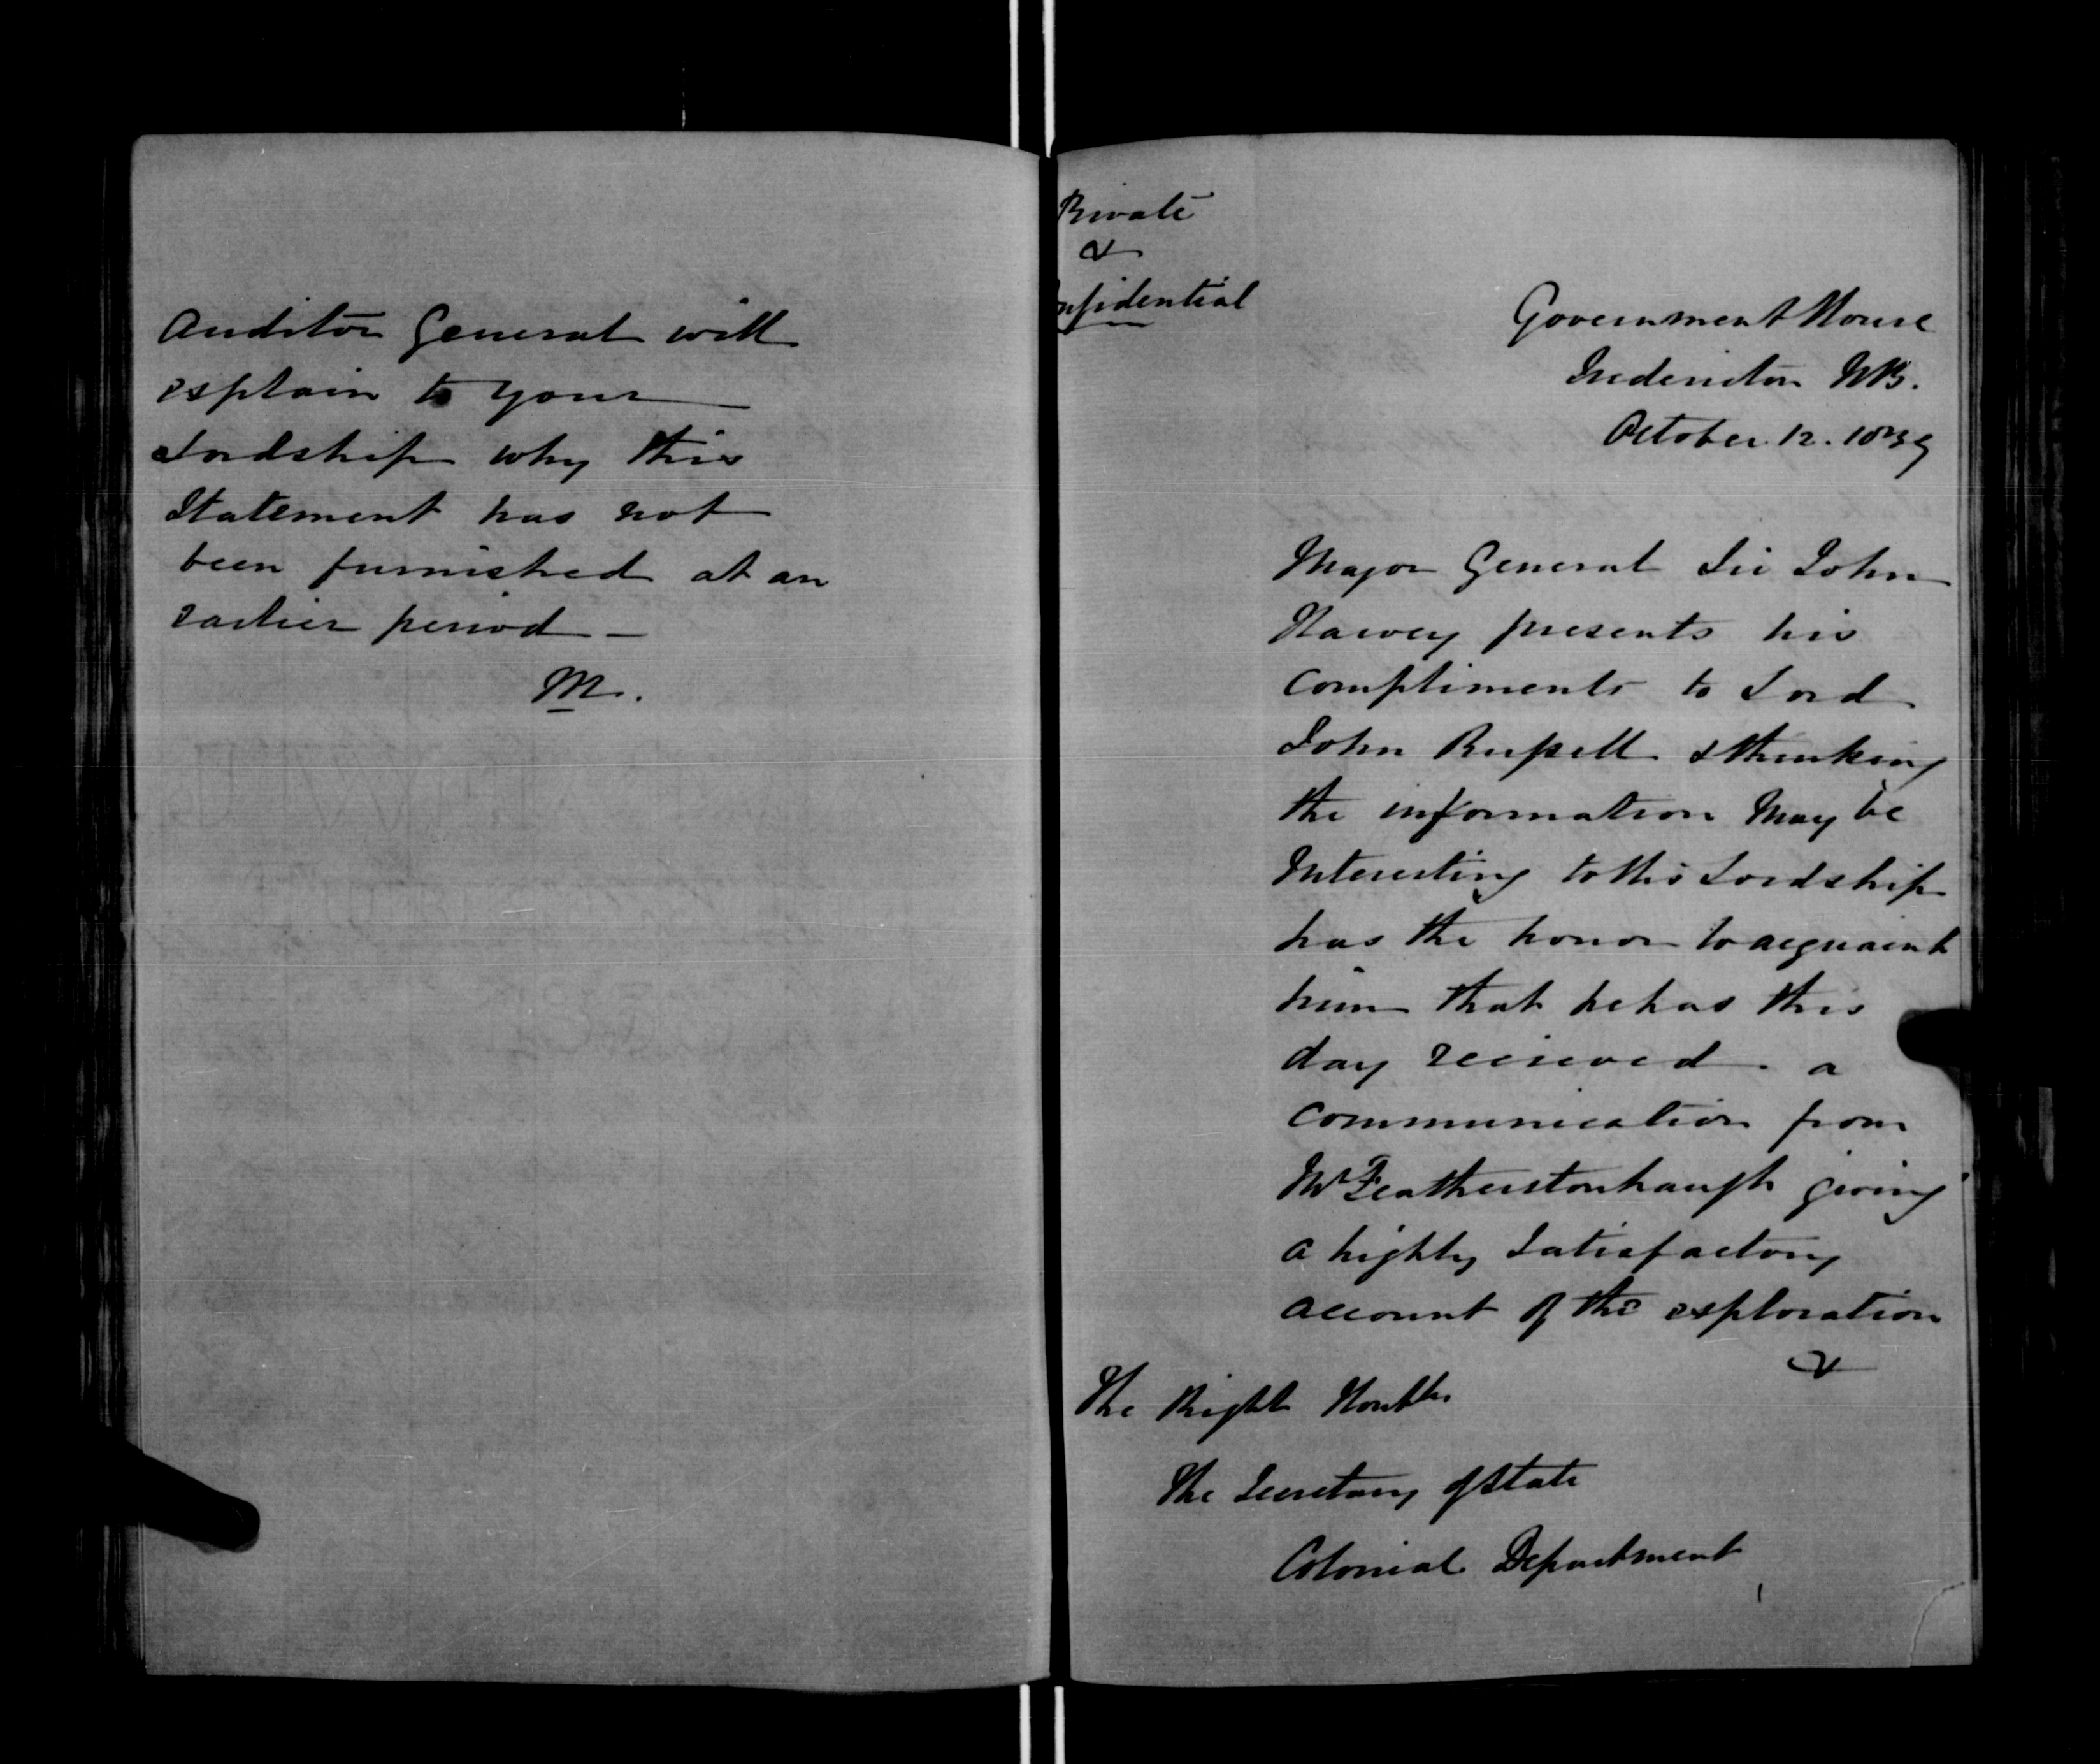 Auditor General will
explain to your
Lordship why this
Statement has not
been furnished at an
earlier period —
M.
Private
&
nfidential
Government House
Fredericton NB.
October 12. 1839
Major General Sir John
Harvey presents his
compliments to Lord
John Russell & thinking
the information may be
interesting to His Lordship
has the honor to acquaint
him that he has this
day received a
communication from
Mr Featherstonhaugh giving
a highly satisfactory
account of the exploration
&
The Right Honble
The Secretary of State
Colonial Department